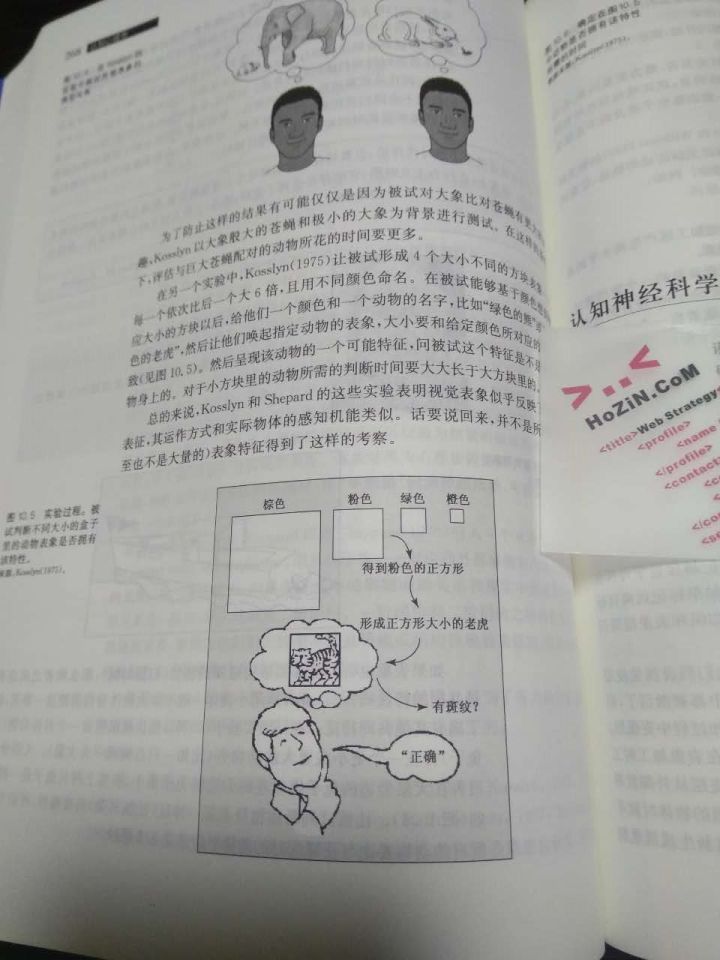 268
为了防止这样的结果有可能仅仅是因为被试对大象比对苍蝇有更
趣,Kosslyn 以大象般大的苍蝇和极小的大象为背景进行测试。在这样的
下,评估与巨大苍蝇配对的动物所花的时间要更多。
在另一个实验中,Kosslyn(1975)让被试形成 4 个大小不同的方块表象
每一个依次比后一个大 6 倍,且用不同颜色命名。在被试能够基于颜色
应大小的方块以后,给他们一个颜色和一个动物的名字,比如“绿色的熊”或
色的老虎”,然后让他们唤起指定动物的表象,大小要和给定颜色所对应的
致(见图 10.5)。然后呈现该动物的一个可能特征,问被试这个特征是不是
物身上的。对于小方块里的动物所需的判断时间要大大长于大方块里的。
总的来说,Kosslyn 和 Shepard 的这些实验表明视觉表象似乎反映了
表征,其运作方式和实际物体的感知机能类似。话要说回来,并不是所
至也不是大量的)表象特征得到了这样的考察。
图 10.5 实验过程。被
试判断不同大小的盒子
里的动物表象是否拥有
该特性。
来源,Kosslyn(1975),
棕色
粉色
绿色
橙色
得到粉色的正方形
形成正方形大小的老虎
有斑纹?
“正确”
图 10.6 确定在图10.5
认知神经科学
HoZiN.CoM
<title>Web Strategy
<profile>
<name
</profile>
<contact>